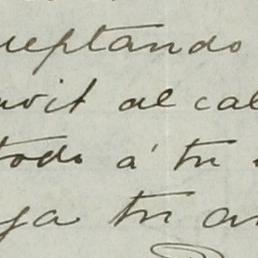 ceptando
al cal
todo á tu
ya tu am